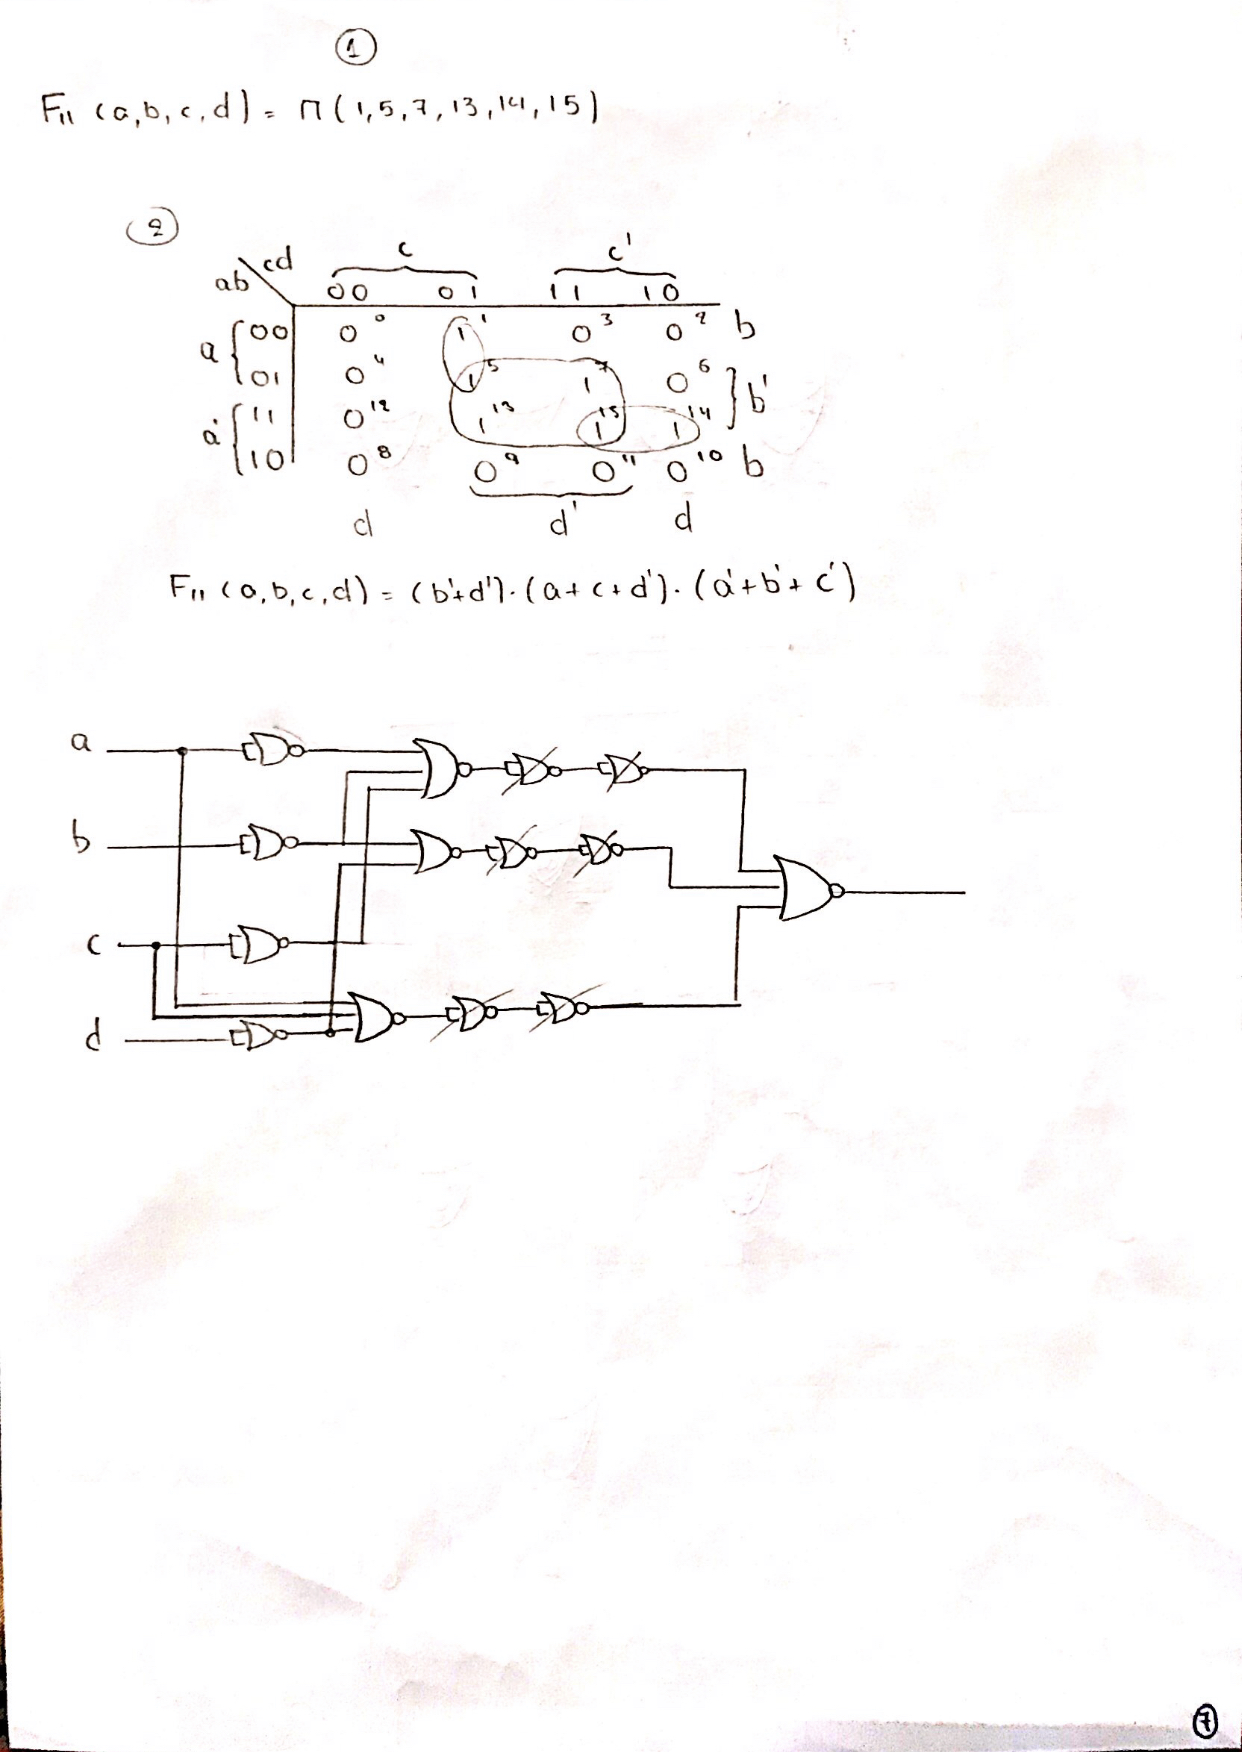 1
F11 (a,b,c,d) = Π(1,5,7,13,14,15)
2
c c'
ab cd 00 01 11 10
a 00 0 0 1 1 0 3 0 2 b
01 0 4 1 5 1 7 0 6 b'
a' 11 0 12 1 13 1 15 1 14
10 0 8 0 9 0 11 0 10 b
d d' d
F11 (a,b,c,d) = (b'+d')·(a+c+d')·(a'+b'+c')
a
b
c
d
7